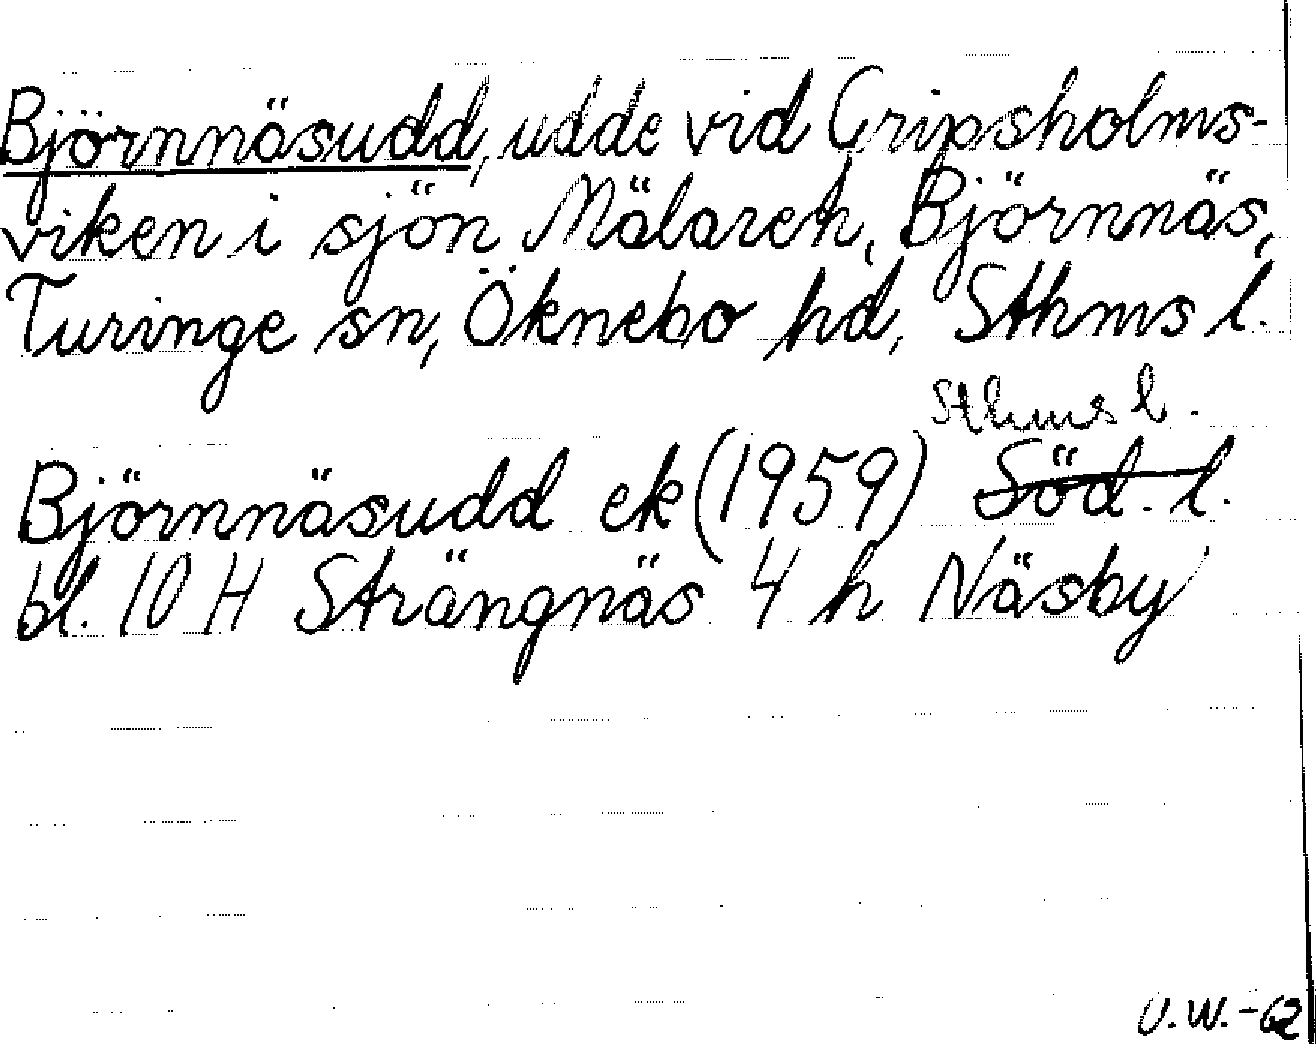 Björnnäsudd, udde vid Gripsholms-
viken i sjön Mälaren, Björnnäs,
Turinge sn, Öknebo hd, Sthms l.
Sthms l.
Björnnäsudd ek (1959) Söd. l.
bl. 10 H Strängnäs 4 h Näsby
U.W.-62